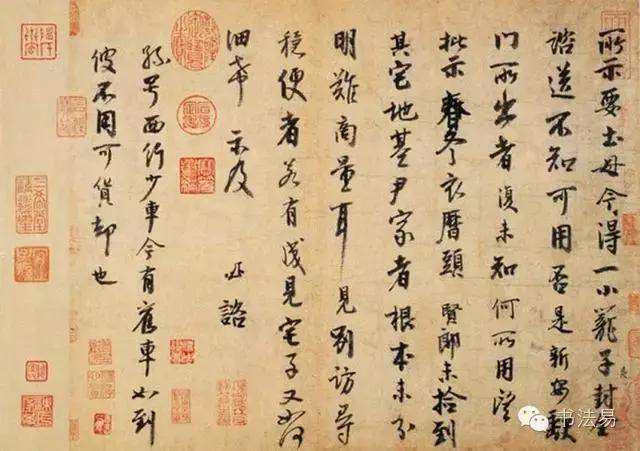 所示要土母今得一小籠子封全
諮送不知可用否是新安缺
門所出者復未知何所用望
批示 春冬衣曆頭 賢郎未撿到
其宅地基尹家者根本未分
明難商量耳見別訪尋
穩便者若有成見宅子又如何
細希 示及 諮
号西行少車今有舊車如到
彼不用可貨却也
书法易